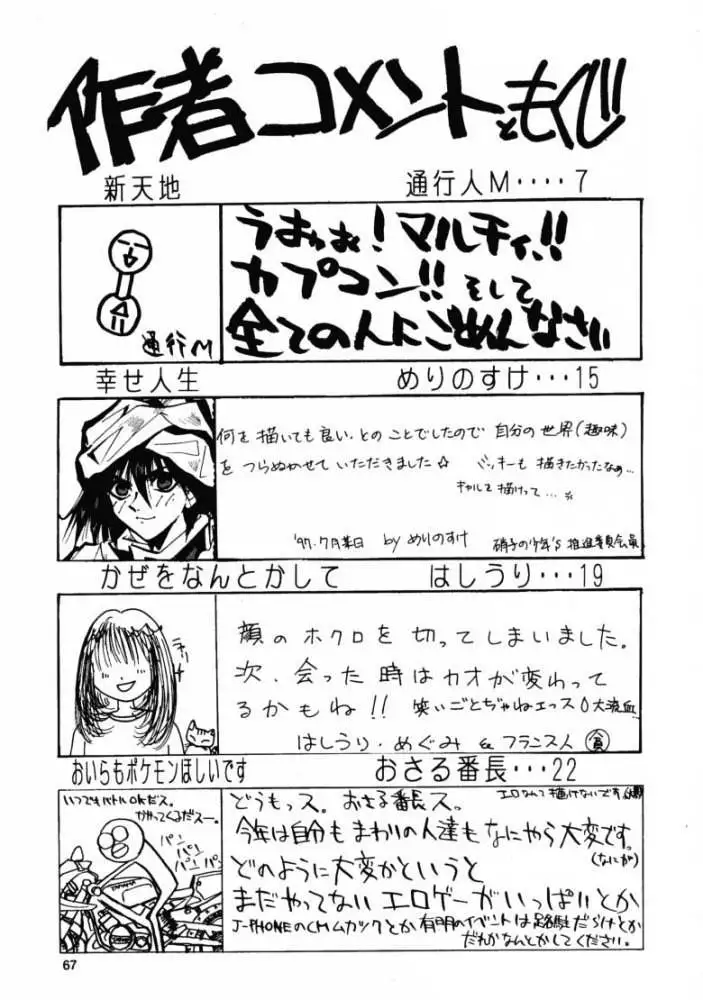 作者コメントともくじ
新天地 通行人M････7
通行M
うおぉぉ!マルチィ!!
カプコン!!そして
全ての人にごめんなさい
幸せ人生 めりのすけ･･･15
何を描いても良い、とのことでしたので 自分の世界(趣味)
をつらぬかせていただきました☆ バッキーも描きたかったなぁ…
ギャルて描けって…
'97.7月某日 by めりのすけ 硝子の少年's 推進委員会員
かぜをなんとかして はしうり･･･19
顔のホクロを切ってしまいました。
次、会った時はカオが変わって
るかもね!! 笑いごとぢゃねエっス 大流血
はしうり.めぐみ & フランス人 貧
おいらもポケモンほしいです おさる番長･･･22
いつでもバトルOKだス。
かかってくるだスー。
パン
パエ
パエ パエ
YAMAHA
どうもっス。おさる番長ス。 エロなんて描けないです
今年は自分もまわりの人達もなにやら大変です。
(なにが)
どのように大変かというと
まだやってないエロゲーがいっぱいとか
J-PHONEのCMムカックとか 有明のイベントは路駐だらけとか
だれかなんとかしてください。
67